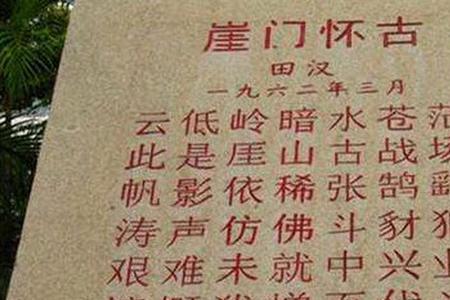 崖门怀古
田汉
一九六二年三月
云低岭暗水苍
此是厓山古战
帆影依稀张鹄
涛声仿佛斗豺
艰难未就中兴